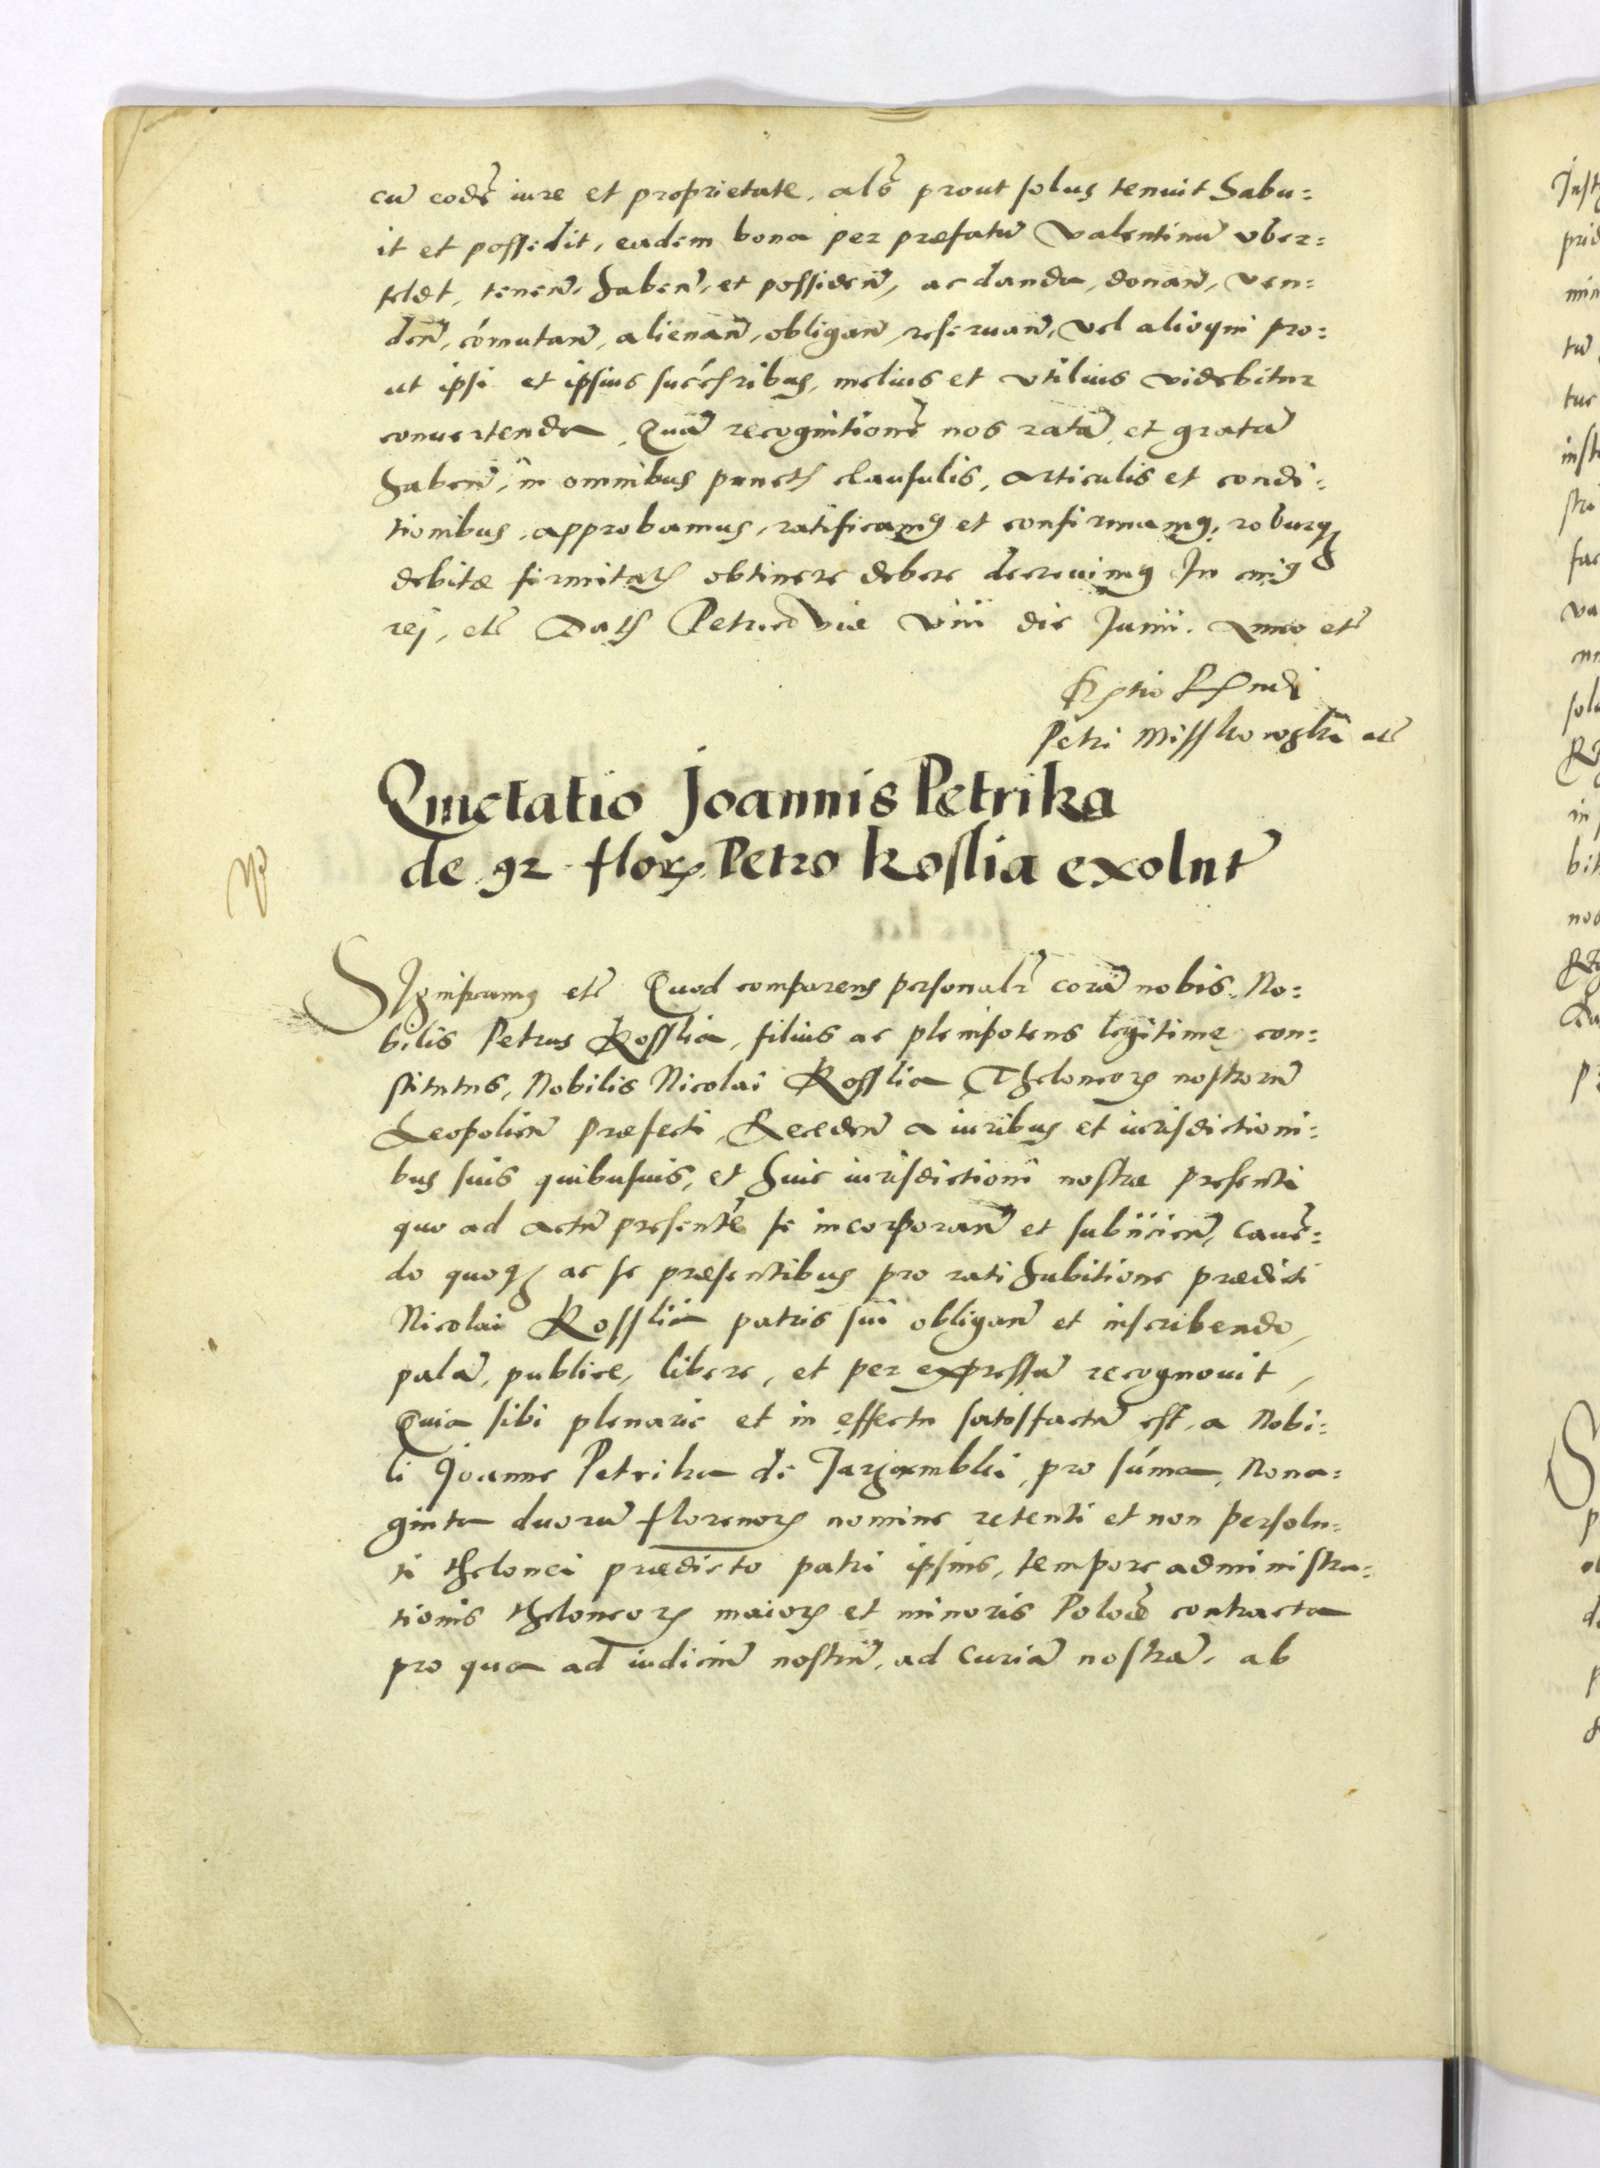 cū eodē iure et proprietate, als prout solus tenuit habu=
it et possedit, eadem bona per præfatū Valentinū Vber=
feldt, tenen̄, haben̄, et possiden̄, ac danda, donan̄, ven=
den̄, cōmutan̄, alienan̄, obligan̄, reseruan̄, vel alioqui pro=
ut ipsi et ipsius succēsribus, melius et vtilius videbitur
conuertenda, Quā recognitionē nos ratā, et gratā
haben̄, in omnibus punctꝭ clausulis, articulis et condi=
tionibus, approbamus, ratificamꝰ et confirmamꝰ, roburqꝫ
debitæ firmitatꝭ obtinere debere decreuimꝰ In cuiꝰ
rei, etc̄ Datꝭ Petricouiæ viii die Junii. Anno etc̄
Petri Misskowski etc̄
Quietatio Joannis Petrika
de 92 florꝝ Petro Koslia exolut̄
Significamꝰ etc̄ Quod comparens personalr̄ corā nobis, No=
bilis Petrus Kosslia, filius ac plenipotens legitime con=
stitutus, Nobilis Nicolai Kosslia Theloneorꝝ nostrorū
Leopolien̄ præfecti, Receden̄ a iuribus et iurisdictioni=
bus suis quibusuis, et huic iurisdictioni nostræ presenti
quo ad actū presentē se incorporan̄ et subiicien̄, Cauē=
do quoqꝫ ac se præsentibus pro rati hubitione prædicti
Nicolai Kosslia patris sui obligan̄ et inscribendo,
palā, publice, libere, et per expressū recognouit,
Quia sibi plenarie et in effectu satisfactū est, a Nobi=
li Joanne Petrika de Jarzambki, pro sūma, Nona=
ginta duorū florenorꝝ nomine retenti et non persolu=
ti thelonei prædicto patri ipsius, tempore administra=
tionis theloneorꝝ maiorꝝ et minoris Poloæ contracta
pro qua ad iudiciū nostrū, ad Curiā nostrā, ab